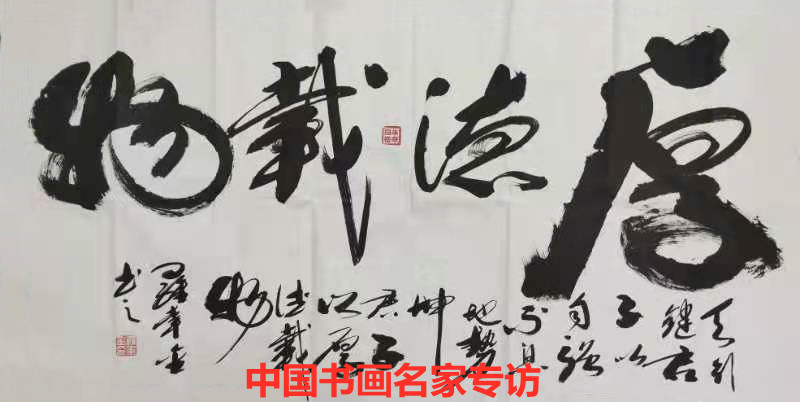 厚德載物
天行
健君
子以
自強
不息
地勢
坤
君子
以厚
德載
物
羅
书之
中国书画名家专访